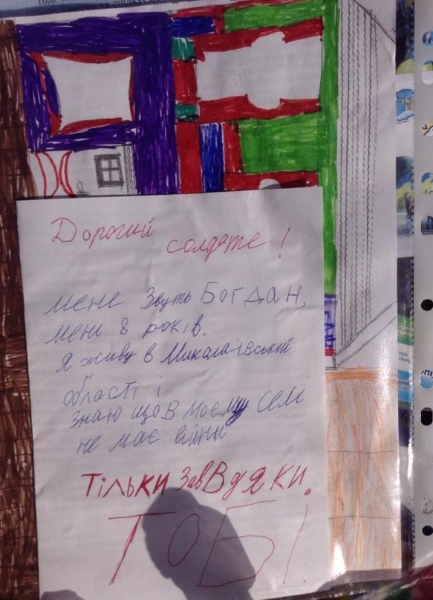 Дорогий солдате!
мене звуть Богдан,
мені 8 років.
я живу в Миколаївській
області і
знаю що в моєму селі
не має війни
ТІЛЬКИ ЗавВдЯКИ
ТОБІ.